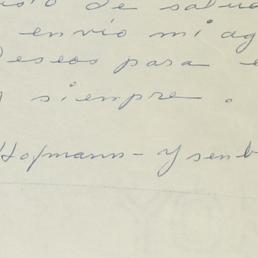 de salu
envío mi ag
Deseos para e
siempre.
Hofmann - Ysenb